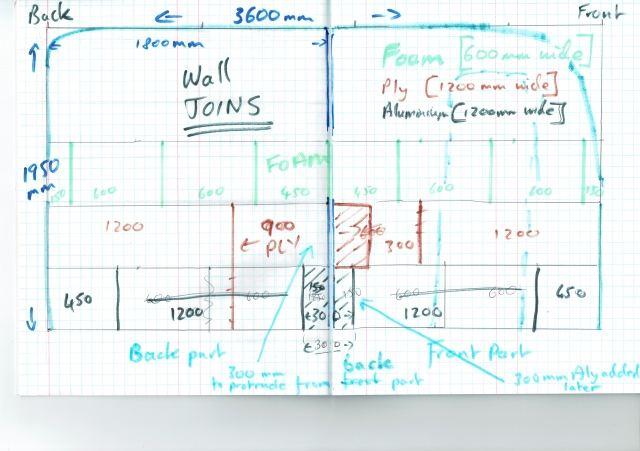 Back ← 3600mm → Front
1800mm
Foam [600mm wide]
Wall
JOINS
Ply [1200 mm wide]
Aluminium [1200mm wide]
1950
mm
FOAM
150 600 600 450 450 600 600 150
1200 900 300 1200
← PLY
450 600 600 150 150 600 600 450
1200 ←300→ 1200
←300→
Back part back Front Part
300 mm
to protrude from front part
300mm Aly added
later